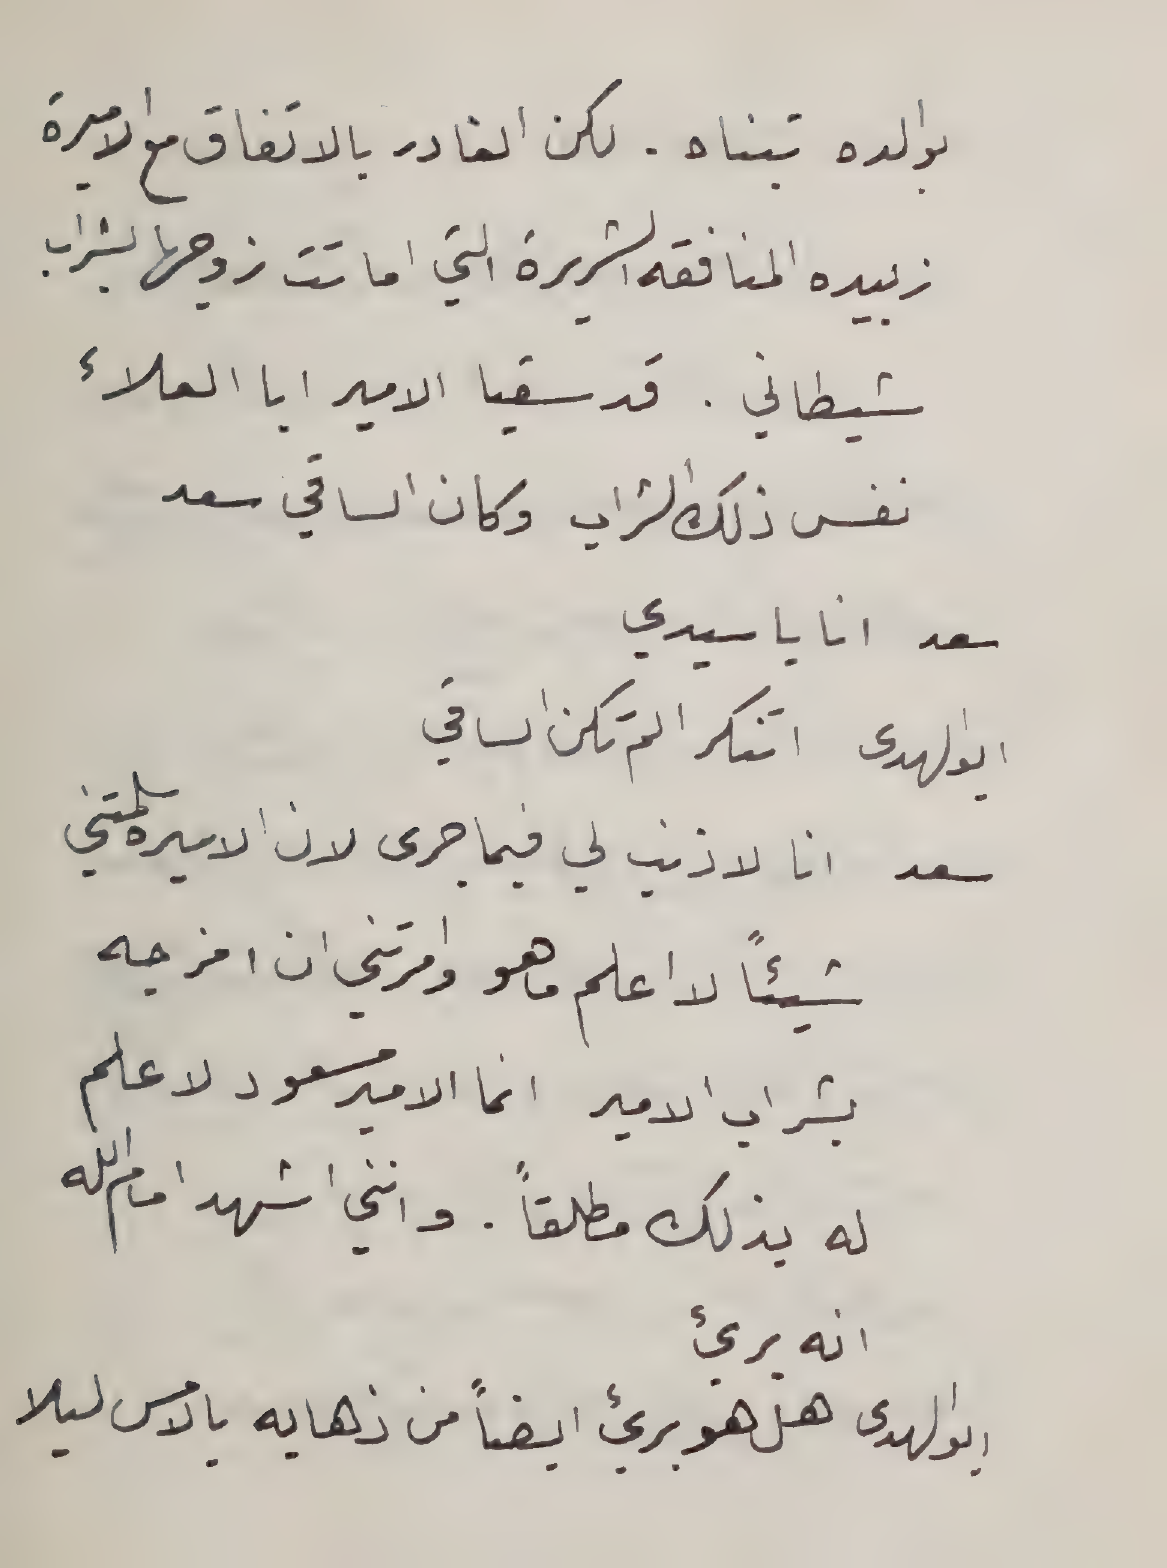 بوالده تبناه . لكن الغادر بالاتفاق مع الاميرة
زبيده المنافقه الشريرة التي اماتت زوجها بشراب
شيطاني . قد سقيا الامير ابا العلاء
نفس ذلك الشراب وكان الساقي سعد
سعد انا يا سيدي
ابوالهدى اتنكر الم تكن الساقي
سعد انا لا ذنب لي فيما جرى لان الاميره سلمتني
شيئاً لا اعلم ما هو وامرتني ان امزجه
بشراب الامير انما الامير مسعود لا علم
له بذلك مطلقاً . وانني اشهد امام الله
انه بريئ
ابوالهدى هل هو بريئ ايضاً من ذهابه بالامس ليلا